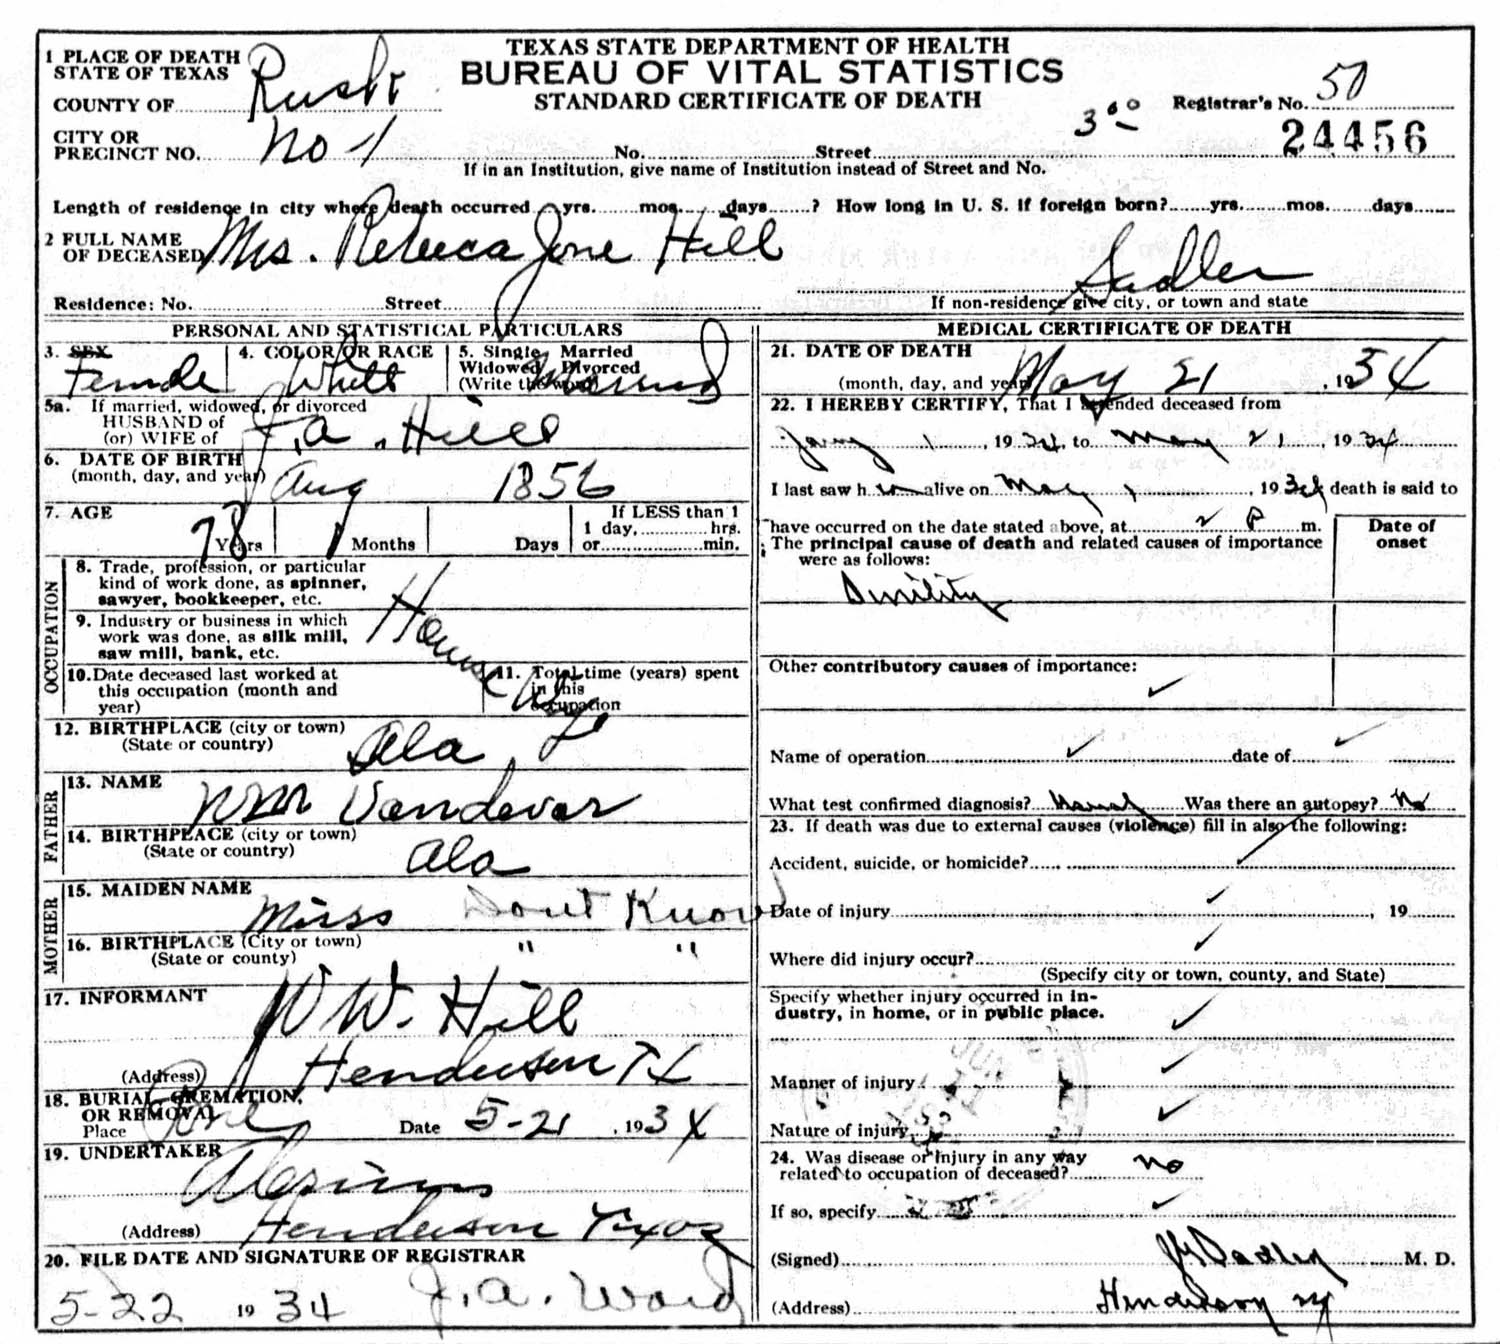 TEXAS STATE DEPARTMENT OF HEALTH
BUREAU OF VITAL STATISTICS
STANDARD CERTIFICATE OF DEATH
1 PLACE OF DEATH
STATE OF TEXAS
COUNTY OF Rusk
CITY OR
PRECINCT NO. No 1
No. Street
If in an Institution, give name of Institution instead of Street and No.
Registrar's No. 50
24456
Length of residence in city where death occurred yrs. mos. days ? How long in U. S. if foreign born? yrs. mos. days
2 FULL NAME
OF DECEASED Mrs. Rebeca Jane Hill
Residence: No. Street
If non-residence give city, or town and state
PERSONAL AND STATISTICAL PARTICULARS
3. SEX Female
4. COLOR OR RACE White
5. Single Married
Widowed Divorced
(Write the word) Married
5a. If married, widowed, or divorced
HUSBAND of
(or) WIFE of J. A. Hill
6. DATE OF BIRTH
(month, day, and year) Aug 1856
7. AGE
78 Years Months Days
If LESS than 1
1 day, hrs.
or min.
OCCUPATION
8. Trade, profession, or particular
kind of work done, as spinner,
sawyer, bookkeeper, etc.
9. Industry or business in which
work was done, as silk mill,
saw mill, bank, etc.
10. Date deceased last worked at
this occupation (month and
year)
11. Total time (years) spent
in this
occupation
House
12. BIRTHPLACE (city or town)
(State or country) Ala
FATHER
13. NAME Wm Vandevar
14. BIRTHPLACE (city or town)
(State or country) Ala
MOTHER
15. MAIDEN NAME Miss Dont Know
16. BIRTHPLACE (City or town)
(State or county) " "
17. INFORMANT W W. Hill
(Address) Henderson TX
18. BURIAL, CREMATION,
OR REMOVAL
Place Date 5-21, 1934
19. UNDERTAKER
(Address) Henderson Texas
20. FILE DATE AND SIGNATURE OF REGISTRAR
5-22 1934 J. A. Ward
MEDICAL CERTIFICATE OF DEATH
21. DATE OF DEATH
(month, day, and year) May 21, 1934
22. I HEREBY CERTIFY, That I attended deceased from
Jany 1, 1934, to May 21, 1934
I last saw h alive on May 1, 1934 death is said to
have occurred on the date stated above, at 2 P m.
The principal cause of death and related causes of importance
were as follows:
Date of
onset
Senility
Other contributory causes of importance:
Name of operation date of
What test confirmed diagnosis? Was there an autopsy? No
23. If death was due to external causes (violence) fill in also the following:
Accident, suicide, or homicide?
Date of injury , 19
Where did injury occur?
(Specify city or town, county, and State)
Specify whether injury occurred in in-
dustry, in home, or in public place.
Manner of injury
Nature of injury
24. Was disease or injury in any way
related to occupation of deceased? no
If so, specify
(Signed) M. D.
(Address) Henderson